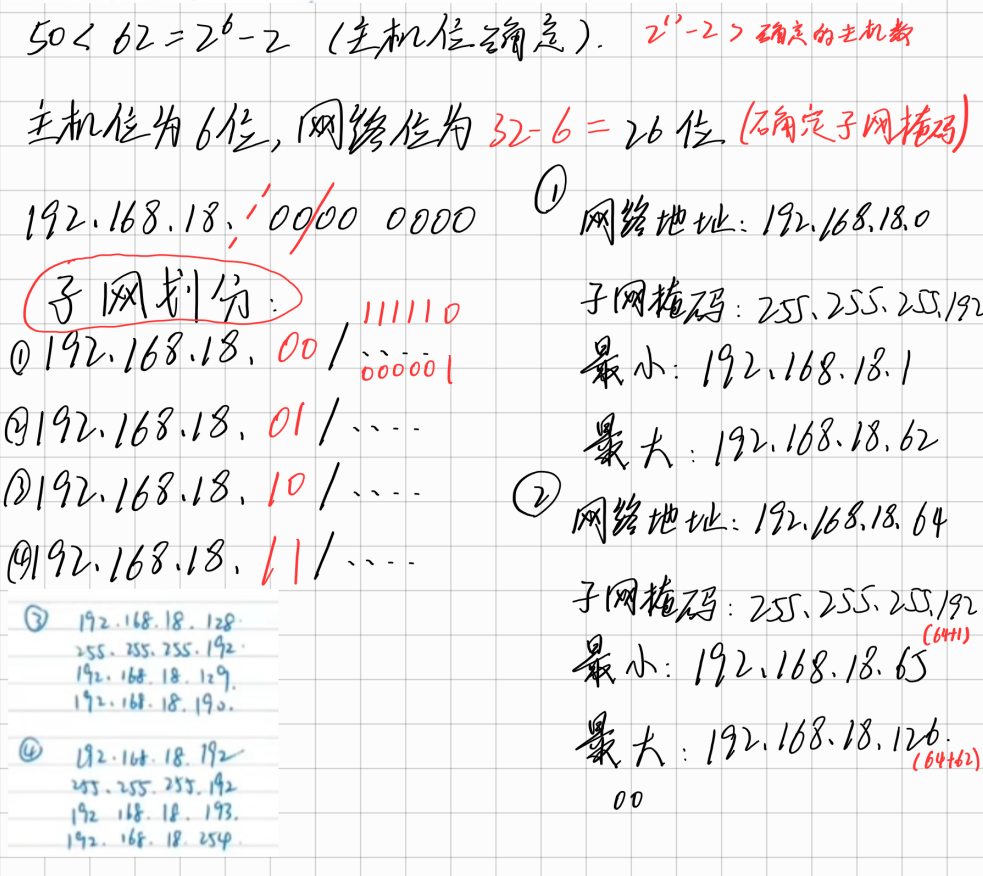 50 < 62 = 2^6 - 2 (主机位确定). 2^n - 2 > 确定的主机数
主机位为6位, 网络位为 32-6 = 26位 (确定子网掩码)
192.168.18. 00/00 0000
子网划分:
111110
① 192.168.18. 00 / .....
000001
② 192.168.18. 01 / ....
③ 192.168.18. 10 / ....
④ 192.168.18. 11 / ....
③ 192.168.18.128.
255.255.255.192.
192.168.18.129.
192.168.18.190.
④ 192.168.18.192
255.255.255.192
192 168.18.193.
192.168.18.254.
①
网络地址: 192.168.18.0
子网掩码: 255.255.255.192
最小: 192.168.18.1
最大: 192.168.18.62
②
网络地址: 192.168.18.64
子网掩码: 255.255.255.192
(64+1)
最小: 192.168.18.65
最大: 192.168.18.126.
(64+62)
00